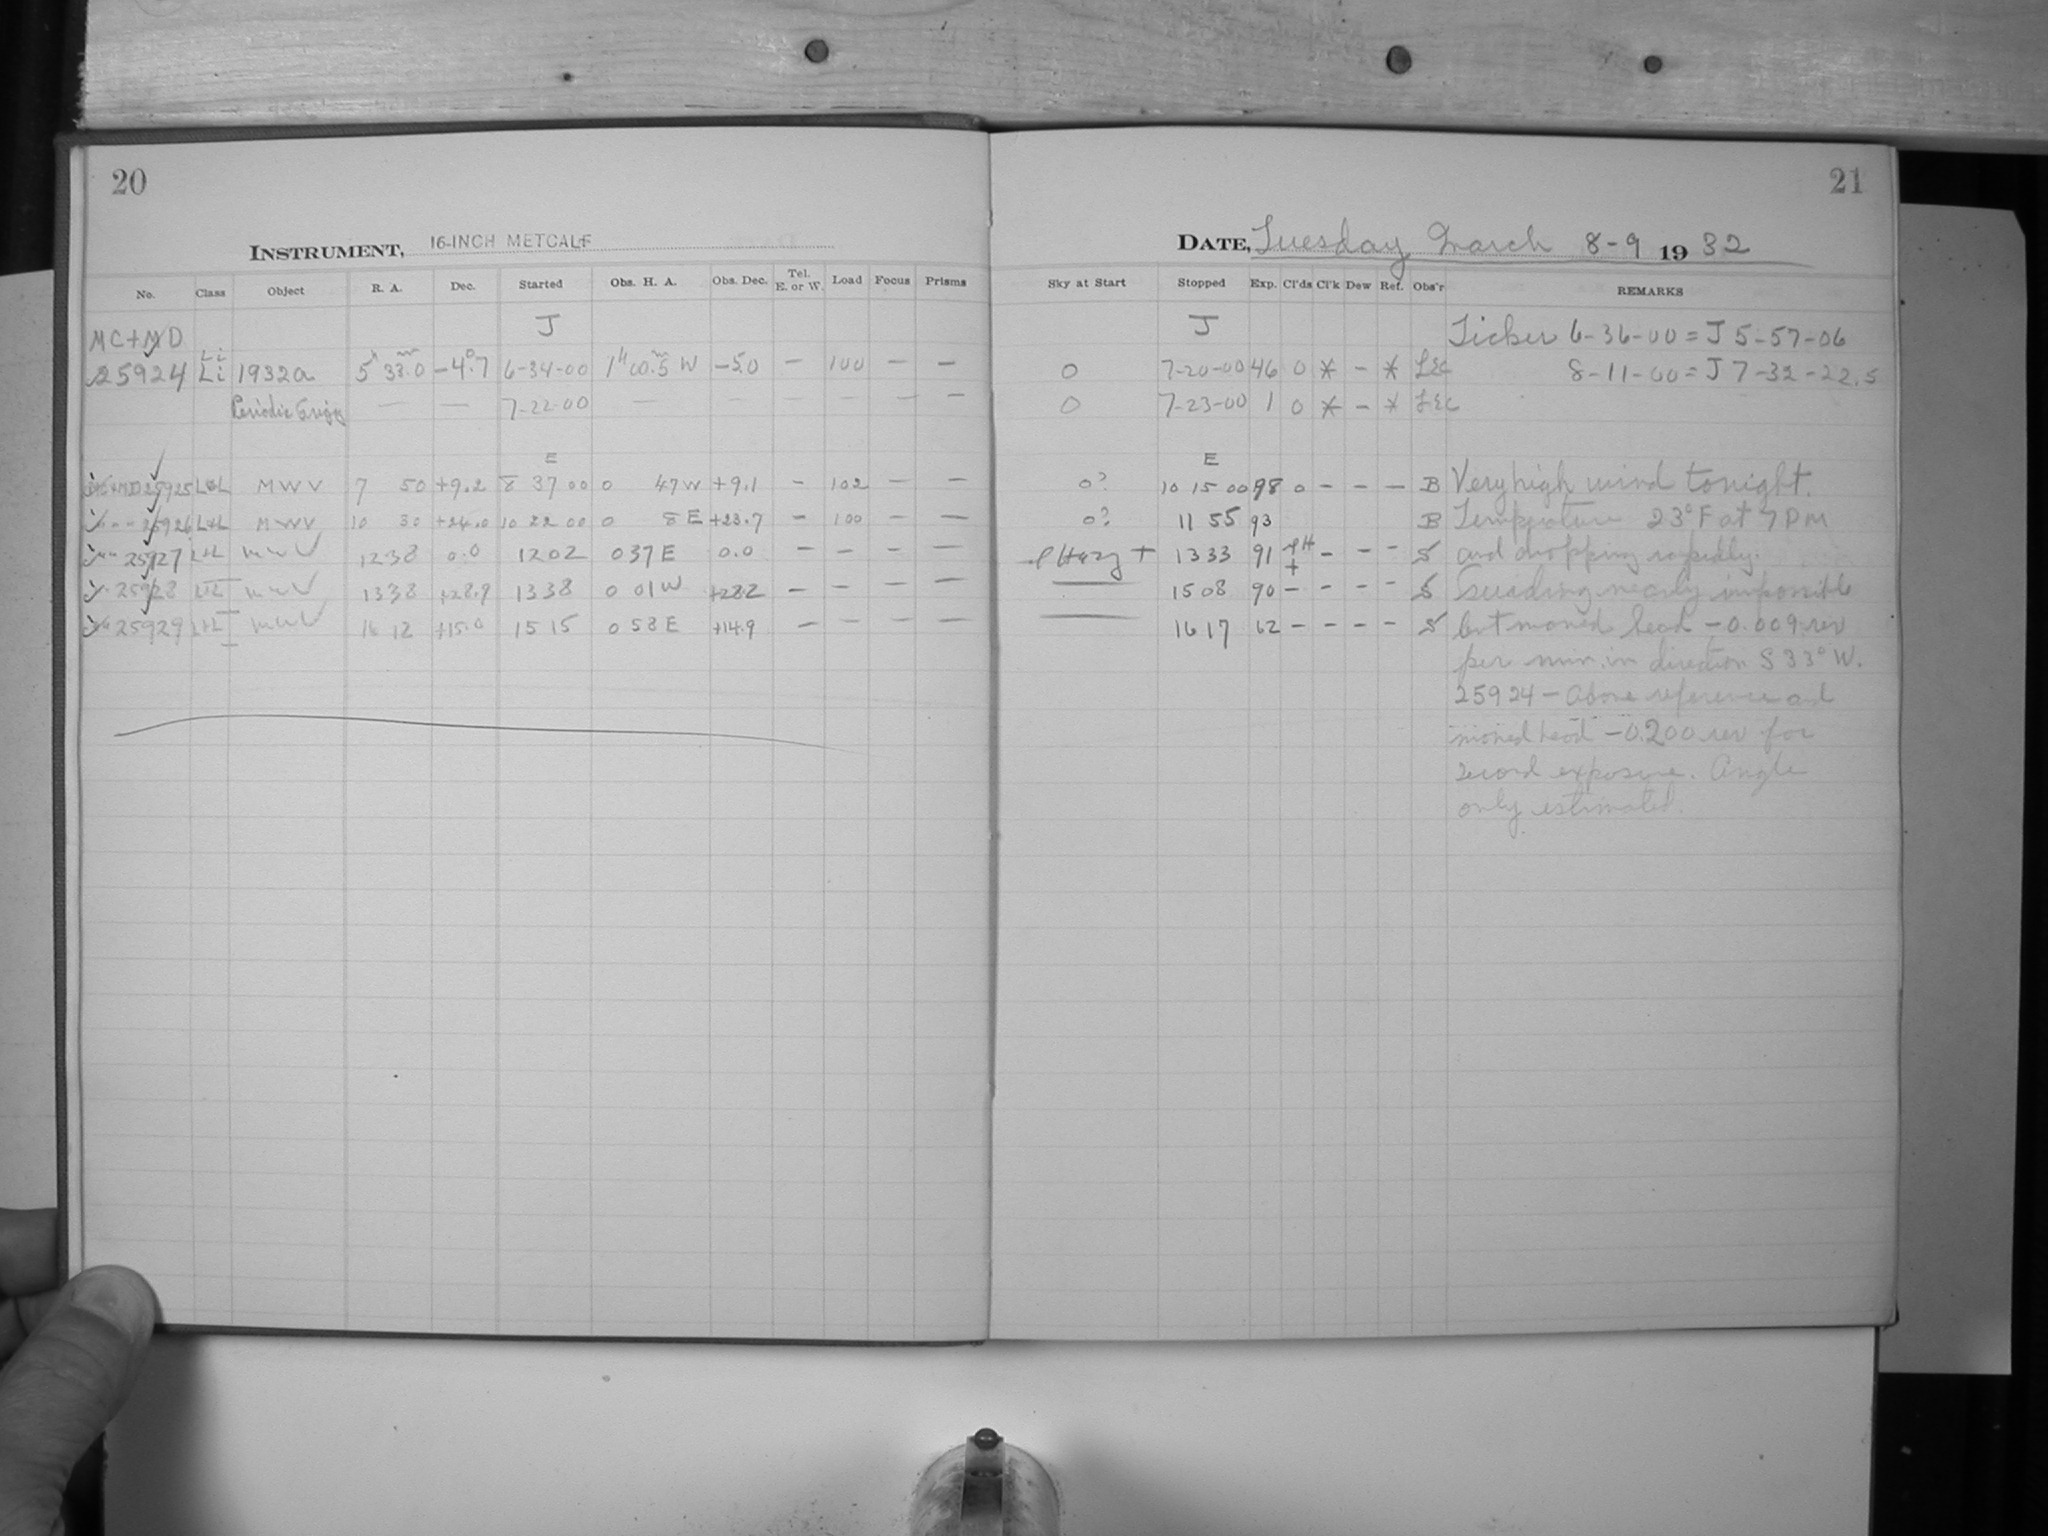 20
INSTRUMENT, 16-INCH METCALF
No. Class Object R. A. Dec. Started Obs. H. A. Obs. Dec. Tel. E. or W. Load Focus Prisms
MC+MD J
25924 Li Li 1932a 5h 33.0m -4°.7 6-34-00 1h 00.5m W -5.0 — 100 — —
Periodic — — 7-22-00 — — — — — —
E
25925 L+L MWV 7 50 +9.2 8 37 00 0 47W +9.1 — 102 — —
25926 L+L MWV 10 30 +24.0 10 22 00 0 8 E +23.7 — 100 — —
25927 L+L MWV 1238 0.0 1202 037 E 0.0 — — — —
25928 L+L MWV 1338 +28.9 1338 0 01W +28.2 — — — —
25929 L+L MWV 16 12 +15.0 15 15 0 58 E +14.9 — — — —
21
DATE, Tuesday March 8-9 1932
Sky at Start Stopped Exp. Cl'ds Cl'k Dew Ref. Obs'r REMARKS
J Ticker 6-36-00 = J 5-57-06
0 7-20-00 46 0 * - * LEC 8-11-00 = J 7-32-22.5
0 7-23-00 1 0 * - * LEC
E
0? 10 15 00 98 0 - - - B Very high wind tonight.
0? 11 55 93 B Temperature 23°F at 7 PM
Hazy + 1333 91 + - - - S and dropping rapidly.
—— 1508 90 - - - - S Guiding nearly impossible
—— 1617 62 - - - - S but moved head -0.009 rev
per min. in direction S 33° W.
25924 - Above reference and
moved head -0.200 rev for
second exposure. Angle
only estimated.